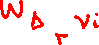 W Δ r v i